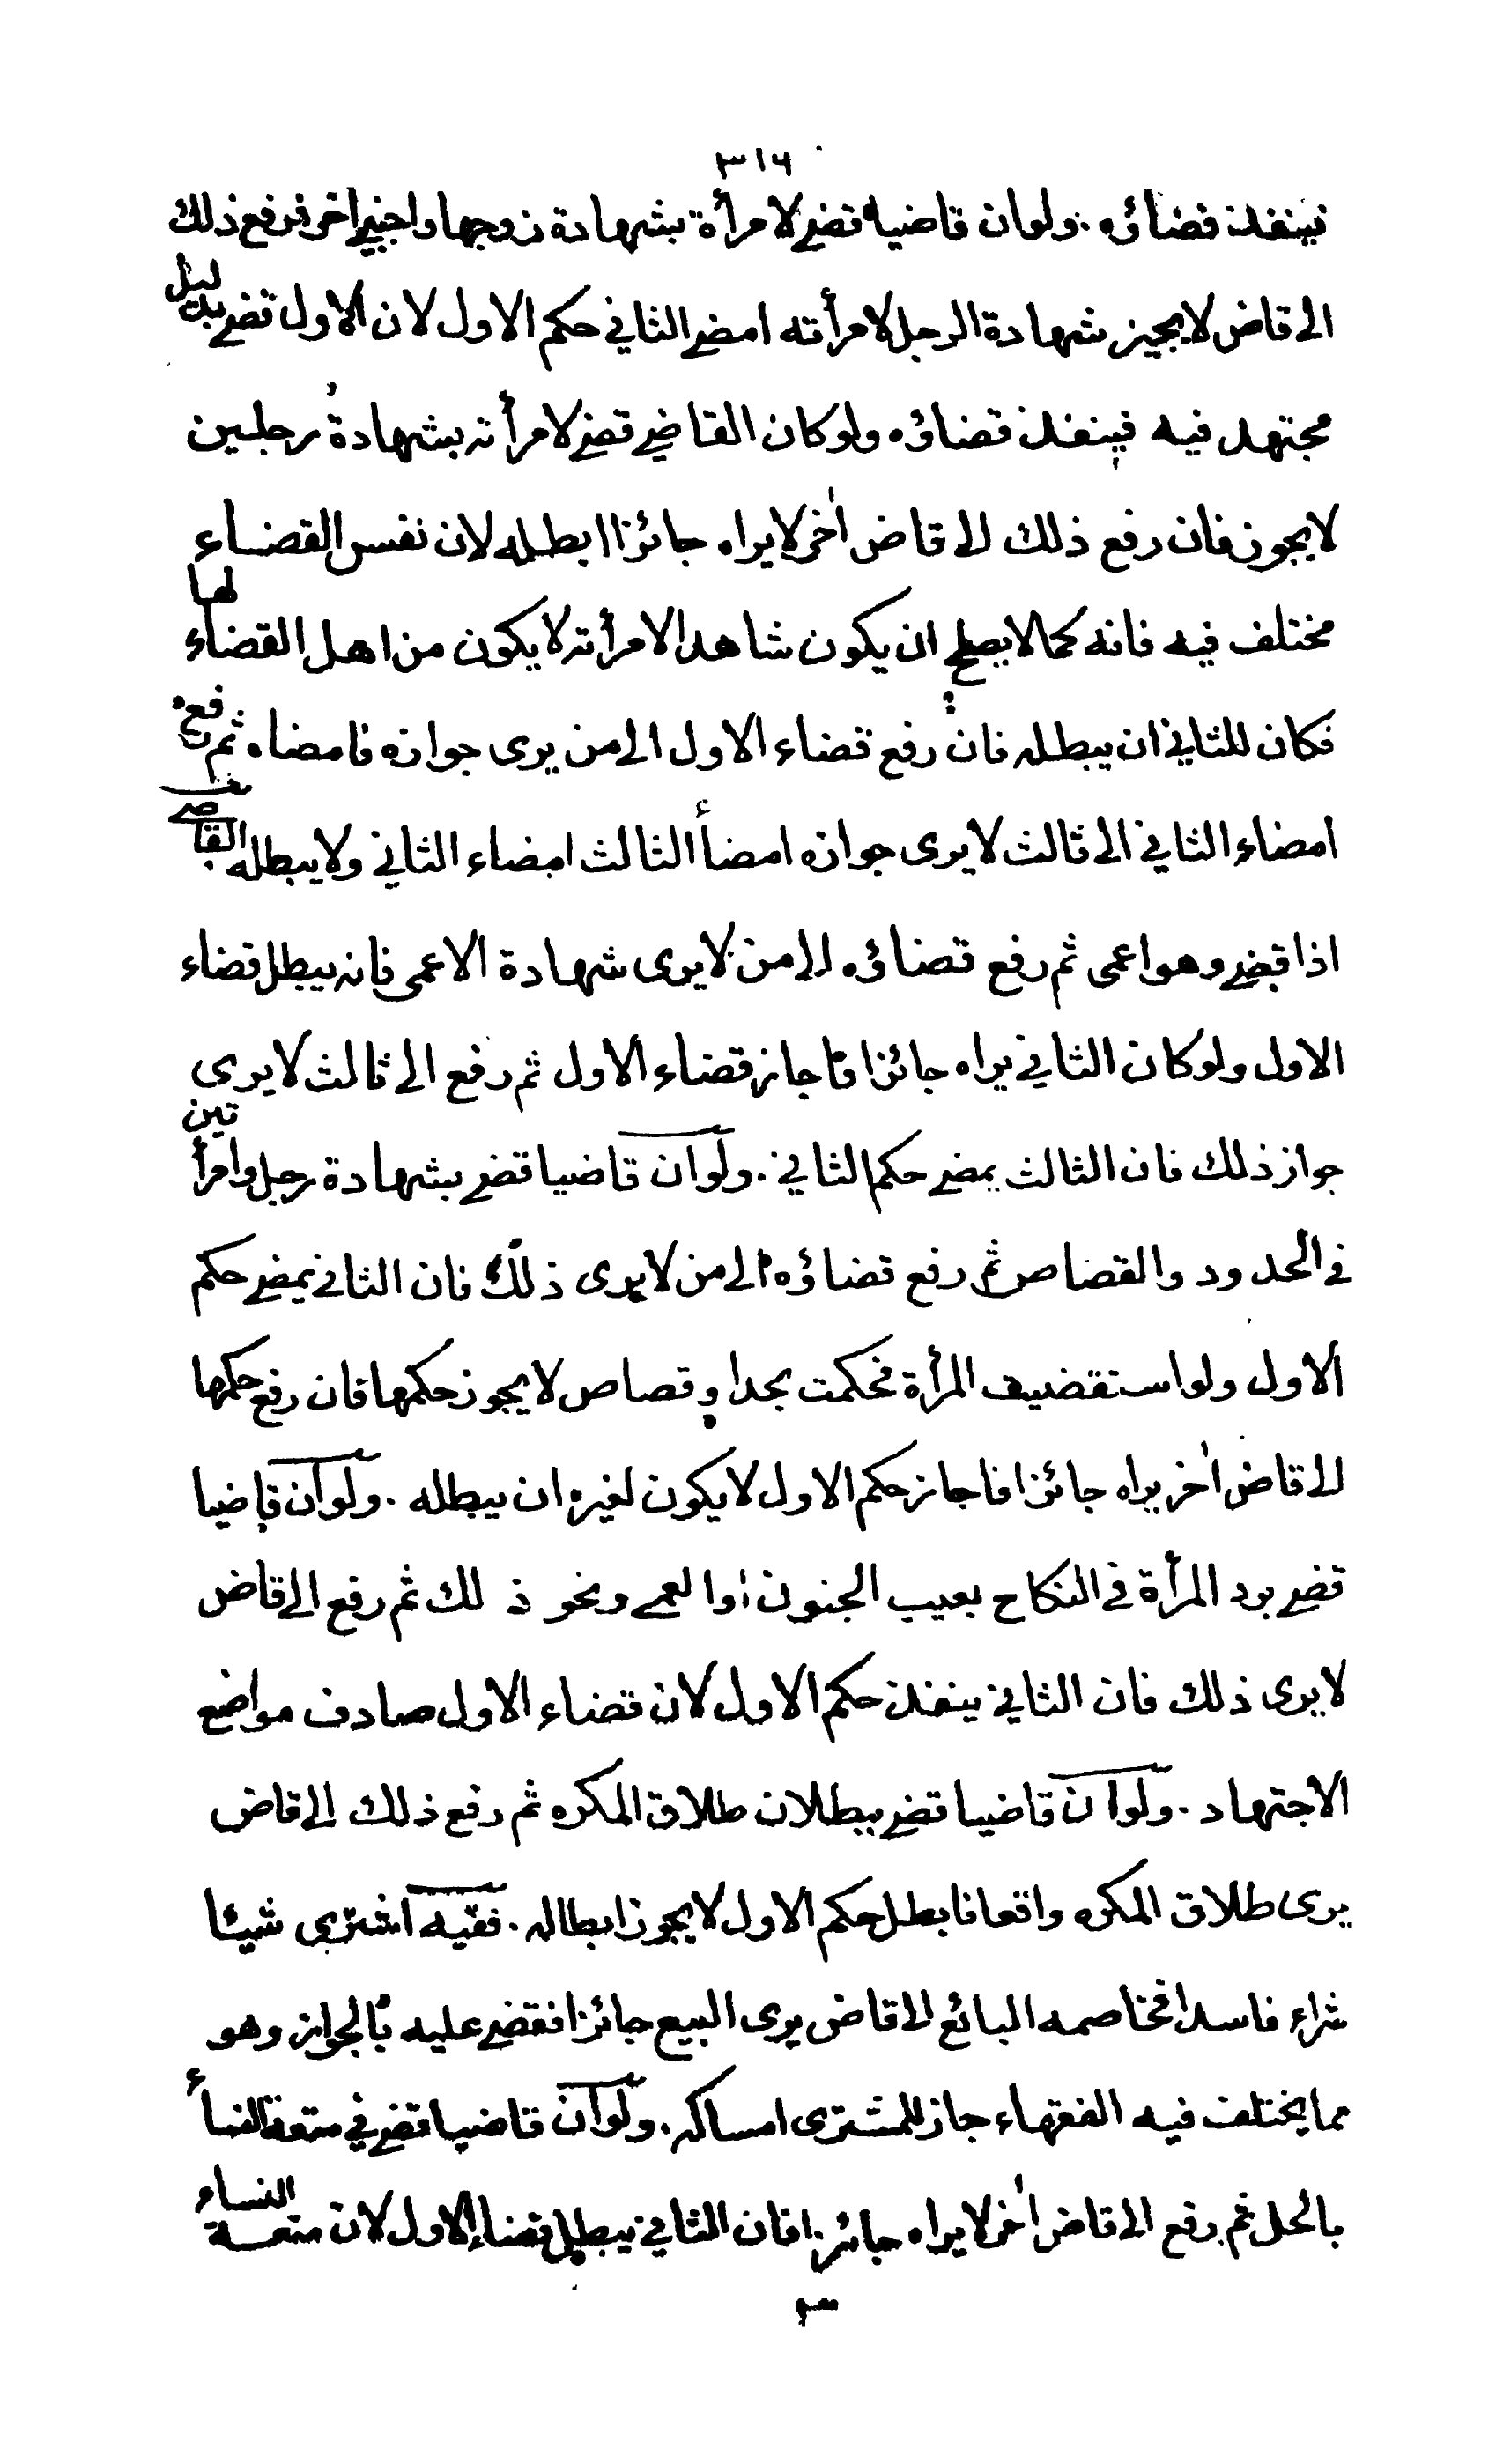 ٣١٦
فينفذ قضاؤه . ولو ان قاضيا قضى لامرأة بشهادة زوجها واجنبي اخر فرفع ذلك
الى قاض لا يجيز شهادة الرجل لامرأته امضى الثاني حكم الاول لان الاول قضى بدليل
مجتهد فيه فينفذ قضاؤه ولو كان القاضي قضى لامرأته بشهادة رجلين
لا يجوز فان رفع ذلك الى قاض اٰخر لا يراه جائزا ابطله لان نفس القضاء
مختلف فيه فانه كما لا يصلح ان يكون شاهدا لامرأته لا يكون من اهل القضاء لها
فكان للثاني ان يبطله فان رفع قضاء الاول الى من يرى جوازه فامضاه ثم رفع
امضاء الثاني الى ثالث لا يرى جوازه امضأ الثالث امضاء الثاني ولا يبطله القاضى
اذا قضى وهو اعمى ثم رفع قضاؤه الى من لا يرى شهادة الاعمى فانه يبطل قضاء
الاول ولو كان الثاني يراه جائزا فاجاز قضاء الاول ثم رفع الى ثالث لا يرى
جواز ذلك فان الثالث يمضى حكم الثاني . ولو ان قاضيا قضى بشهادة رجل وامرأتين
في الحدود والقصاص ثم رفع قضاؤه الى من لا يرى ذلك فان الثاني يمضى حكم
الاول ولو استقضيت المرأة فحكمت بحد او قصاص لا يجوز حكمها فان رفع حكمها
الى قاض اٰخر يراه جائزا فاجاز حكم الاول لا يكون لغيره ان يبطله . ولو ان قاضيا
قضى برد المرأة في النكاح بعيب الجنون او العمى ونحو ذلك ثم رفع الى قاض
لا يرى ذلك فان الثاني ينفذ حكم الاول لان قضاء الاول صادف مواضع
الاجتهاد . ولو ان قاضيا قضى ببطلان طلاق المكره ثم رفع ذلك الى قاض
يرى طلاق المكره واقعا فابطل حكم الاول لا يجوز ابطاله . فقيه اشترى شيئا
شراء فاسدا فخاصمه البائع الى قاض يرى البيع جائزا فقضى عليه بالجواز وهو
مما يختلف فيه الفقهاء جاز للمشترى امساكه . ولو ان قاضيا قضى في متعة النساء
بالحل ثم رفع الى قاض اٰخر لا يراه جائزا فان الثاني يبطل قضاء الاول لان متعة النساء